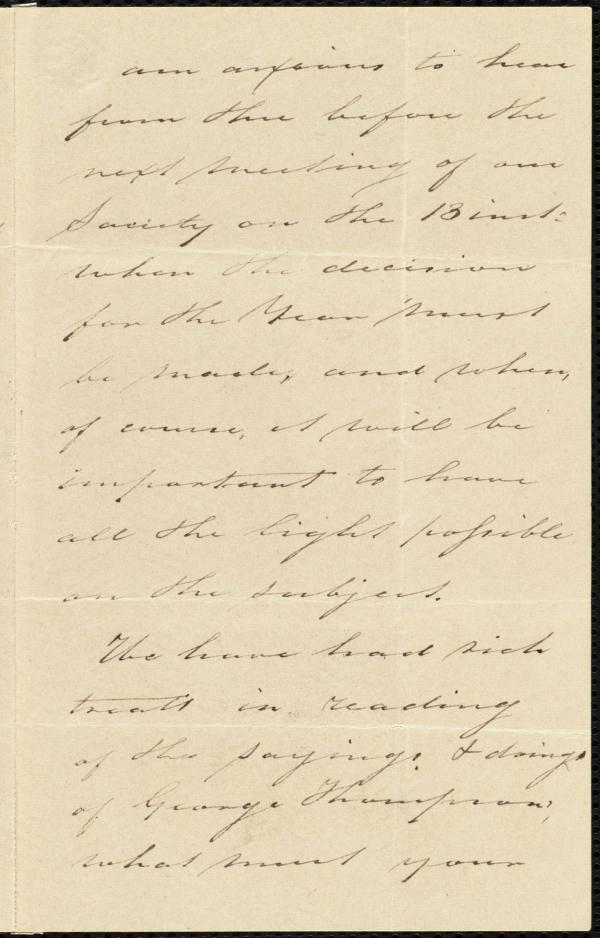 am anxious to hear
from thee before the
next meeting of our
Society on the 13 inst:
when the decision
for the Year must
be made, and when,
of course, it will be
important to have
all the light possible
on the subject.
We have had rich
treats in reading
of the sayings & doings
of George Thompson;
what must your